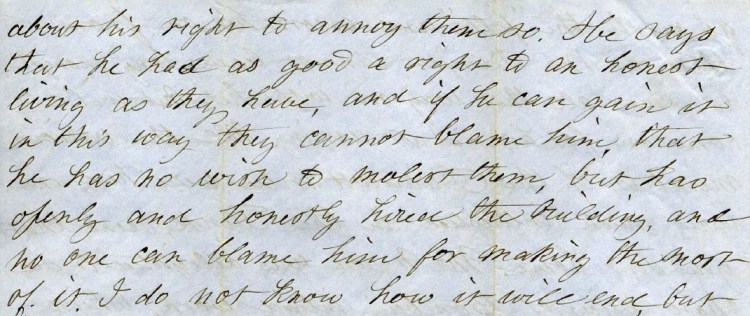 about his right to annoy them so. He says
that he had as good a right to an honest
living as they have, and if he can gain it
in this way they cannot blame him, that
he has no wish to molest them, but has
openly and honestly hired the building, and
no one can blame him for making the most
of it. I do not know how it will end, but